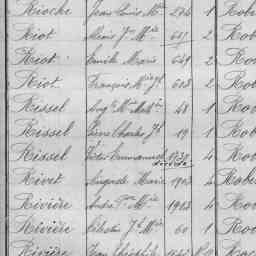 Rioche Jean Louis Mie 274 1 Rob
Riot Alexis Jn Mie 651 2 Rob
Riot Emile Marie 649 2 Rob
Riot François Mie 608 2 Rob
Rissel Aug. 48 1 Rob
Rissel Pierre Charles Jh 19 1 Rob
Rissel Victor Emmanuel 1730 4 Rob
Rivet Auguste Marie 1903 4 Rob
Rivière André Mie 1903 4 Rob
Rivière Célestin Jh Mie 60 1 Rob
Rivière Jean Théophile Rob